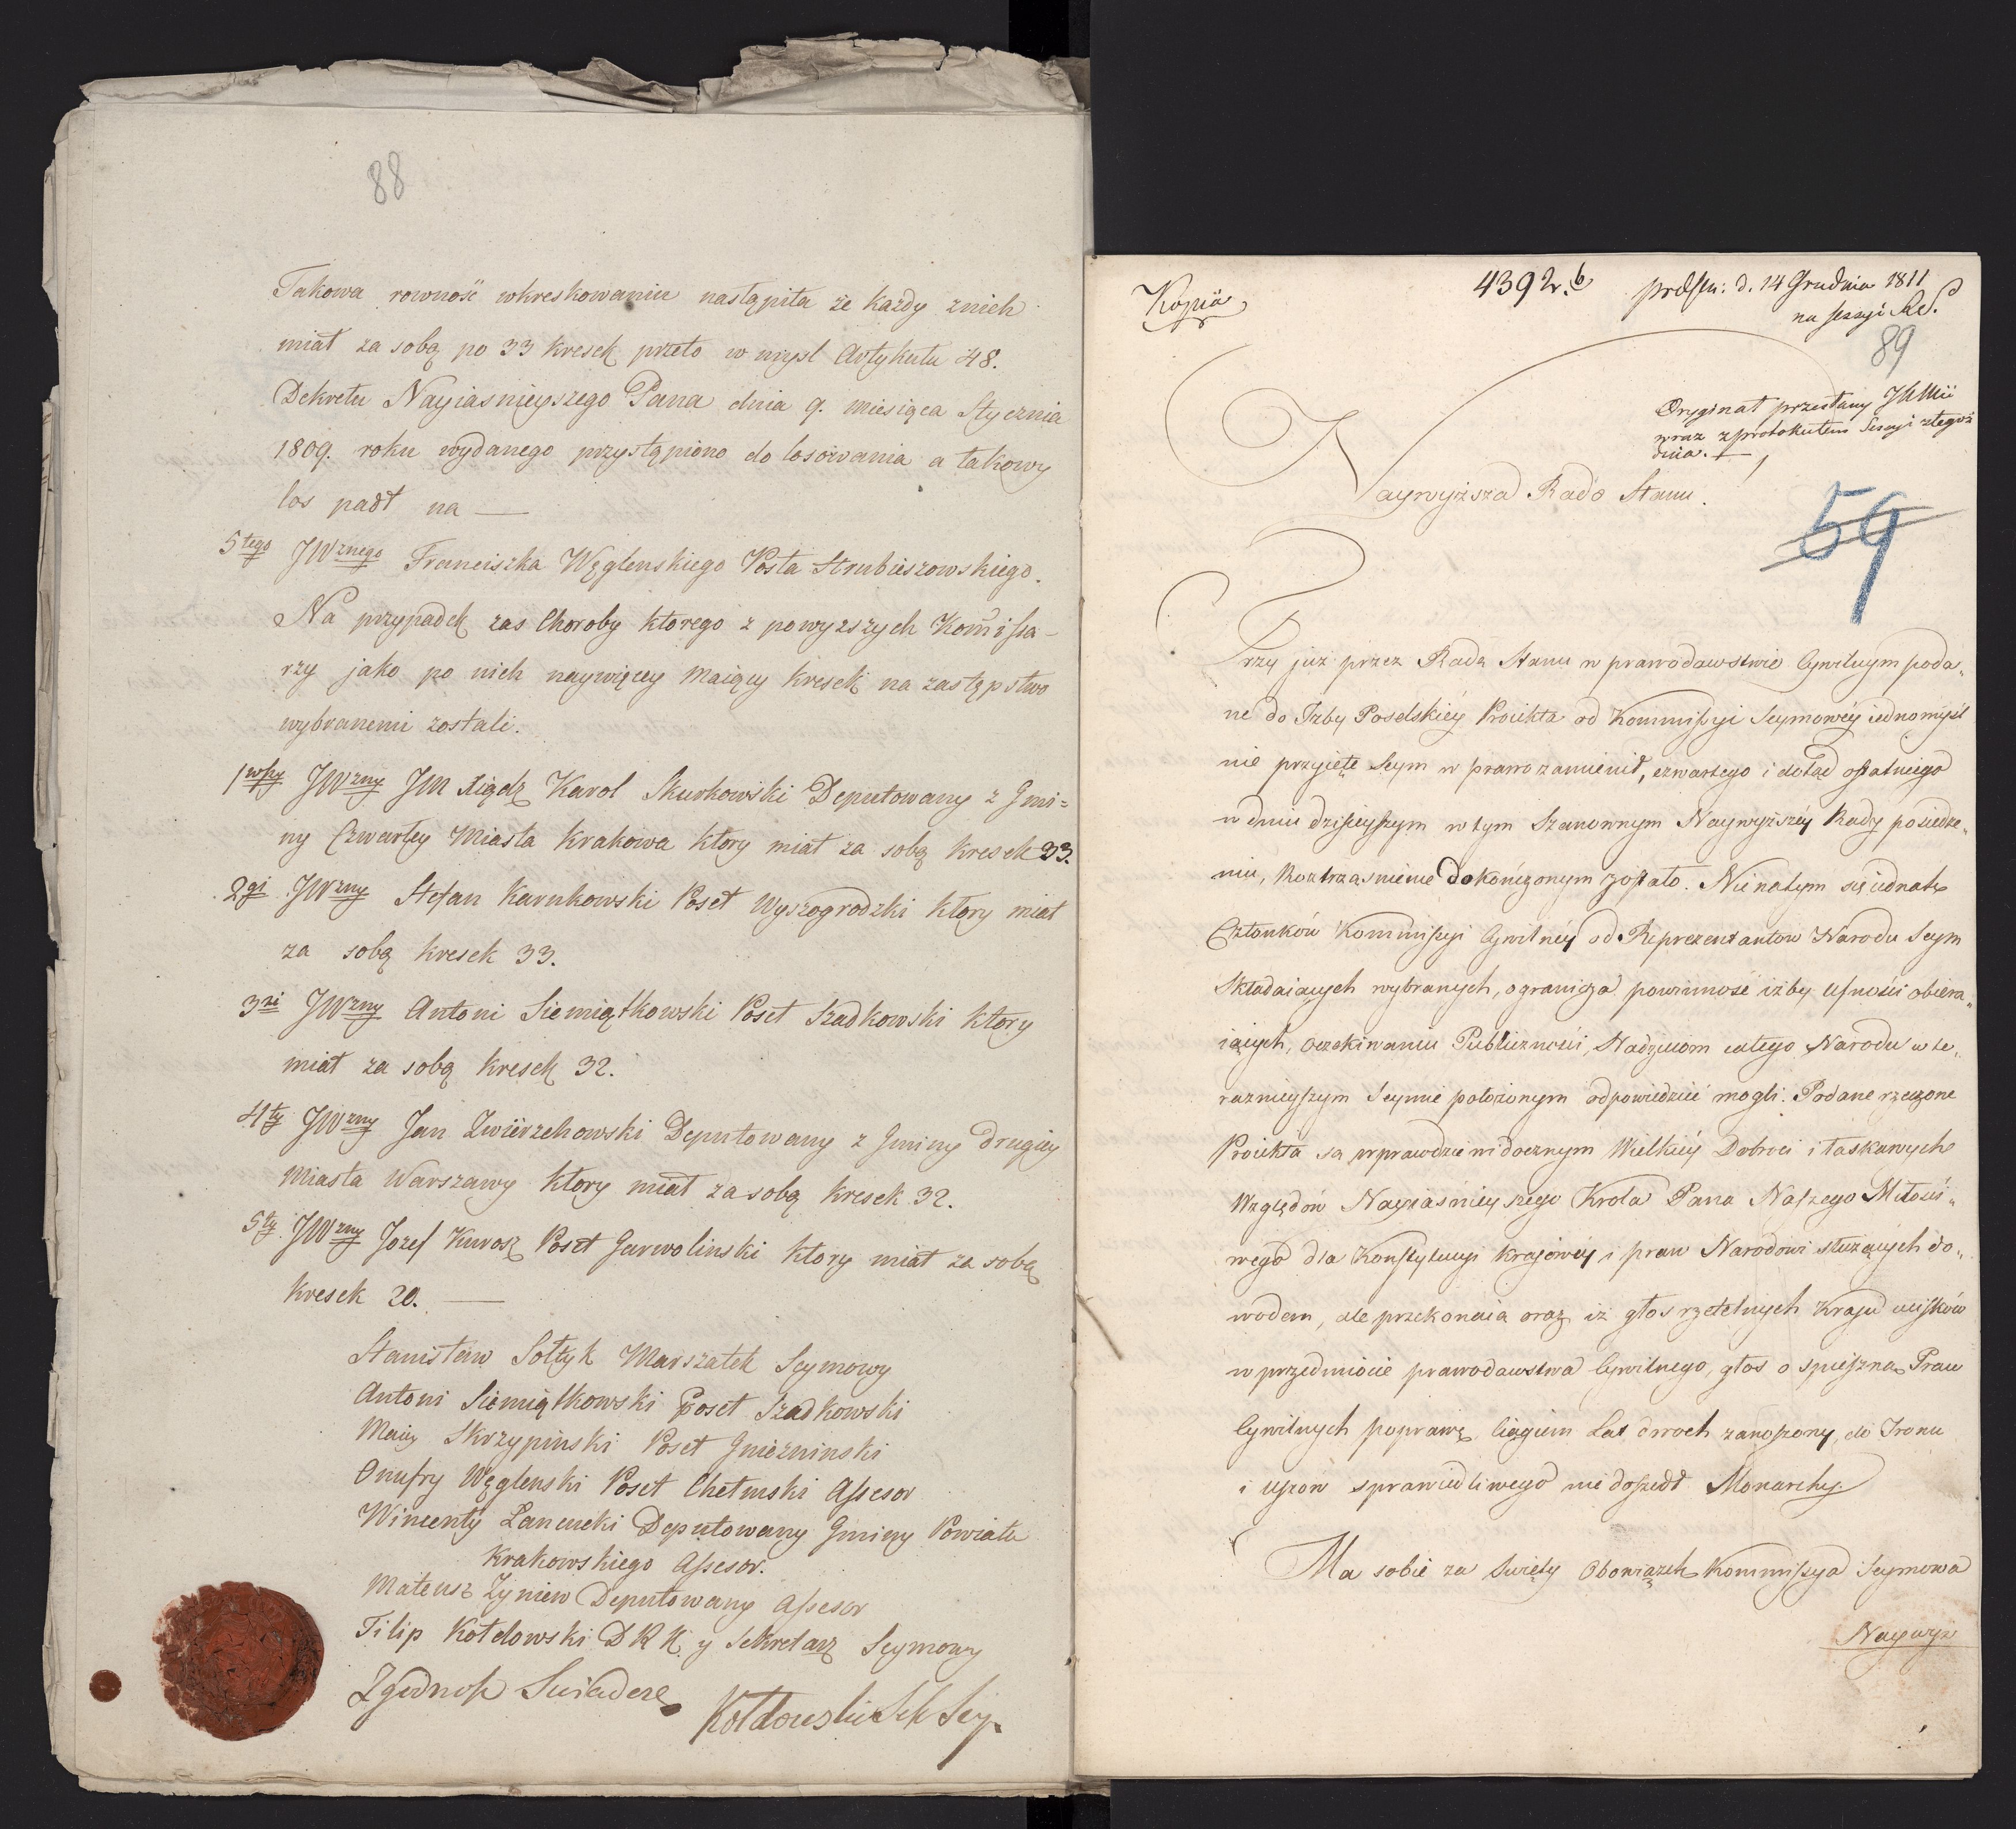 88
Takowa rowność wkreskowaniu nastąpiła że każdy znich
miał za sobą po 33 kresek przeto w mysl Artykułu 48.
Dekretu Nayiasnieyszego Pana dnia 9. miesiąca Stycznia
1809. roku wydanego przystąpiono do losowania a takowy
los padł na —
5tego JWznego Franciszka Węglenskiego Posła Hrubieszowskiego.
Na przypadek zas Choroby ktorego z powyzszych Kom̃issa-
rzy jako po nich naywięcey maiący kresek na zastępstwo
wybranemi zostali.
1wszy JWzny JM Xiądz Karol Skurkowski Deputowany z Gmi=
ny Czwartey Miasta Krakowa ktory miał za sobą kresek 33.
2gi JWzny Stefan Karnkowski Poseł Wyszogrodzki ktory miał
za sobą kresek 33.
3ci JWzny Antoni Siemiątkowski Poseł Szadkowski ktory
miał za sobą kresek 32.
4ty JWzny Jan Zwierzchowski Deputowany z Gminy Drugiey
Miasta Warszawy ktory miał za sobą kresek 32.
5ty JWzny Jozef Kurosz Poseł Garwolinski ktory miał za sobą
kresek 20. —
Stanisław Sołtyk Marszałek Seymowy
Antoni Siemiątkowski Poseł Szadkowski
Skrzypinski Poseł Gnieźninski
Onufry Węglenski Poseł Chełmski Assesor
Wincenty Łancucki Deputowany Gminy Powiatu
Krakowskiego Assesor.
Mateusz Zyniew Deputowany Assesor
Filip Kołdowski D R K. y Sekretarz Seymowy
Zgodnosc Swiadczę
Kołdowski Sek Sey.
Kopia
4392.b
prdstn: d. 14 Grudnia 1811
na sessyi R S.
89
Oryginał przesłany JKMci
wraz z protokułem Sessyi ztegoż
dnia.
Naywyższa Rado Stanu.
59
Trzy już przez Radę Stanu w prawodawstwie Cywilnym poda„
ne do Izby Poselskiey Proiekta od Kommissyi Seymowéy iednomyśl
nie przyięte Seym w prawo zamienił, czwartego i dotąd ostatniego
w dniu dzisieyszym w tym Szanownym Naywyższéy Rady posiedze„
niu, Roztrząsnienie dokończonym zostało. Nie natym się iednak
Członków Kommissyi Cywilnéy od Reprezentantow Narodu Seym
Składaiących wybranych, ogranicza powinność iżby Ufności obiera„
iących, oczekiwaniu Publiczności, Nadzieiom całego Narodu w te„
raznieyszym Seymie położonym odpowiedzieć mogli. Podane rzeczone
Proiekta są wprawdzie widocznym Wielkiéy Dobroci i łaskawych
Względów Nayiaśnieyszego Krola Pana Naszego Miłości„
wego dla Konstytucyi Krajowéy i praw Narodowi służących do„
wodem, ale przekonaia oraz iż głos rzetelnych Kraju ucisków
w przedmiocie prawodawstwa Cywilnego, głos o spieszną Praw
Cywilnych poprawę ciągiem Lat dwoch zanoszony, do Tronu
i uszow sprawiedliwego nie doszedł Monarchy.
Ma sobie za Swięty Obowiązek Kommissya Seymowa
Naywyż